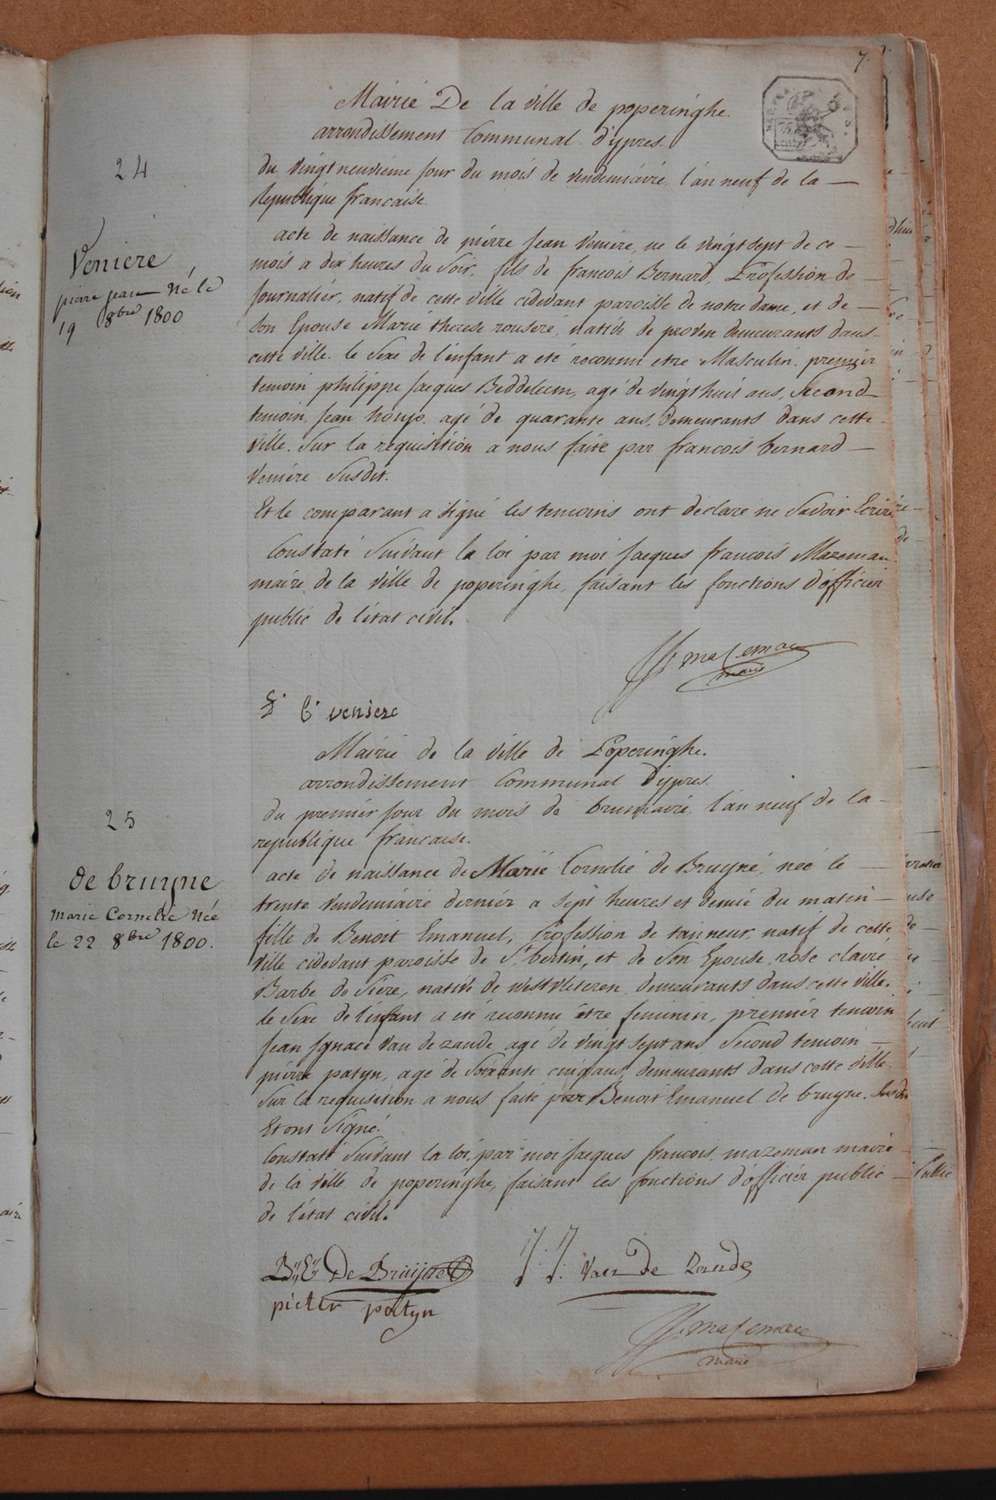 7.
Mairie De la ville de poperinghe.
arrondissement Communal d'ypres.
24
du vingt neuvieme jour du mois de vendemiaire l'an neuf de la
Republique francaise.
Veniere
pierre jean né le
19 8bre 1800
acte de naissance de pierre jean veniere, né le vingt sept de ce
mois a dix heures du soir, fils de francois Bernard, Profession de
journalier, natif de cette ville cidevant paroisse de notre dame, et de
son Epouse Marie therese rousere, native de proven demeurants dans
cette ville. le sexe de l'enfant a eté reconnu etre Masculin. premier
temoin philippe jacques Beddeleem, agé de vingt huit ans, Second
temoin jean houjo. agé de quarante ans, demeurants dans cette
ville. Sur la requisition a nous faite par francois bernard
veniere Susdit.
Et le comparant a signé les temoins ont declaré ne savoir Ecrire
Constaté suivant la loi par moi jacques francois Mazeman
maire de la ville de poperinghe, faisant les fonctions d'officier
public de l'etat civil.
mazeman
maire
veniere
Mairie de la ville de Poperinghe.
arrondissement Communal d'ypres.
25
du premier jour du mois de brumaire, l'an neuf de la
republique francaise.
de bruyne
marie Cornelie Née
le 22 8bre 1800.
acte de naissance de Marie Cornelie de Bruyne, née le
trente vendemiaire dernier a sept heures et demie du matin
fille de Benoit Emanuel, Profession de tanneur, natif de cette
ville cidevant paroisse de St. bertin, et de son Epouse rose claire
Barbe de Siere, native de westvleteren demeurants dans cette ville.
le sexe de l'enfant a été reconnu être feminin, premier temoin
jean Ignace van de zande, agé de vingt sept ans Second temoin
pierre patyn, agé de soixante cinq ans, demeurants dans cette ville
Sur la requisition a nous faite par Benoit Emanuel de bruyne. Susdit
Et ont signé.
Constaté suivant la loi, par moi jacques francois mazeman maire
de la ville de poperinghe, faisant les fonctions d'officier public
de l'etat civil.
De Bruijne J. J. van De Zande
pieter patyn
mazeman
maire